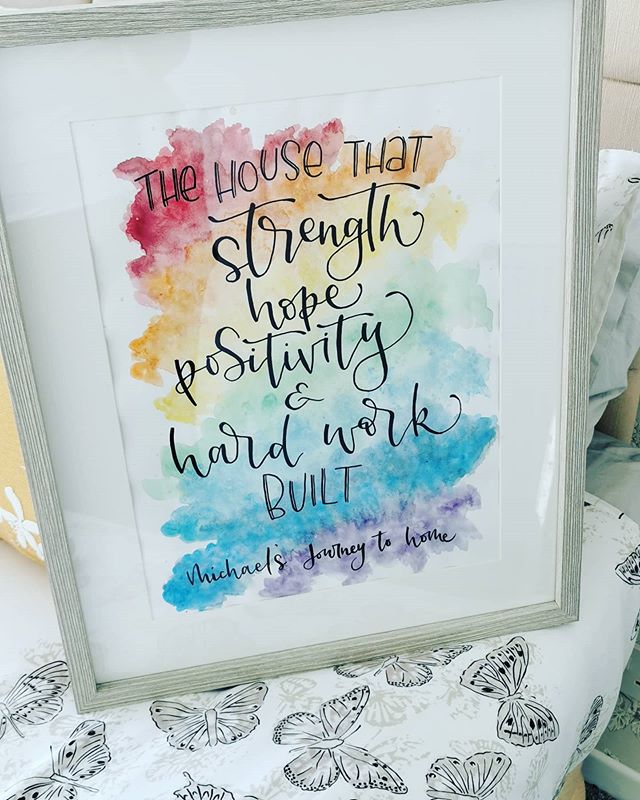 THE HOUSE THAT
strength
hope
positivity
&
hard work
BUILT
Michael's Journey to home